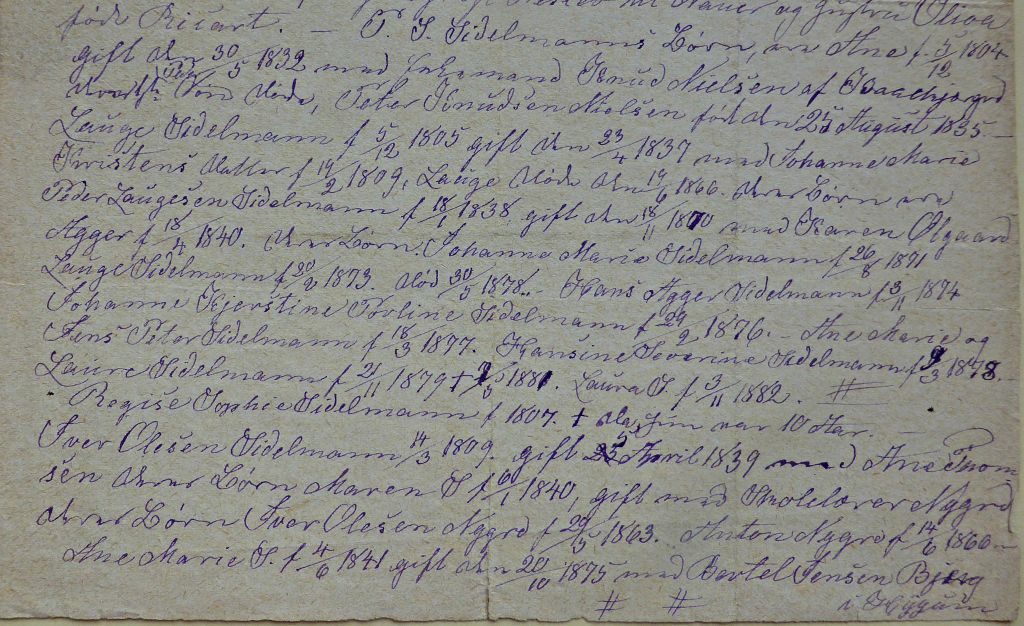 født Ricart. — P. I. Sidelmanns Børn, ere Ane f. 5/12 1804
gift den 30/5 1832 med Knud Nielsen af
Søn døde, Peter Knudsen Nielsen født den 25 August 1835 —
Lauge Sidelmann f 5/12 1805 gift den 23/4 1837 med Johanne Marie
Kristens Datter f 14/2 1809, Lauge døde den 14/6 1866. deres Børn ere
Peder Laugesen Sidelmann f 18/1 1838 gift den 18/11 1870 med Karen Olgaard
Agger f 18/4 1840. deres Børn. Johanne Marie Sidelmann f 26/8 1871
Lauge Sidelmann f 20/2 1873. død 30/5 1878. — Hans Agger Sidelmann f 3/11 1874
Johanne Kjerstine Sidelmann f 29/2 1876. — Ane Marie og
Jens Peter Sidelmann f 18/3 1877. Hansine Severine Sidelmann f 3/3 1878. —
Laurs Sidelmann f 21/11 1879 + 1881. Laura S. f 3/11 1882. #
Regise Sophie Sidelmann f 1807. + da hun var 10 Aar. —
Iver Olesen Sidelmann 14/3 1809. gift April 1839 med Ane Thom
sen deres Børn Maren S f 6/1 1840, gift med Skolelærer Nygrd
deres Børn Iver Olesen Nygrd f 20/5 1863. Anton Nygrd f 14/6 1860 —
Ane Marie S. f 4/6 1841 gift den 20/10 1875 med Bertel Jensen Bjerg
# # i Hygum